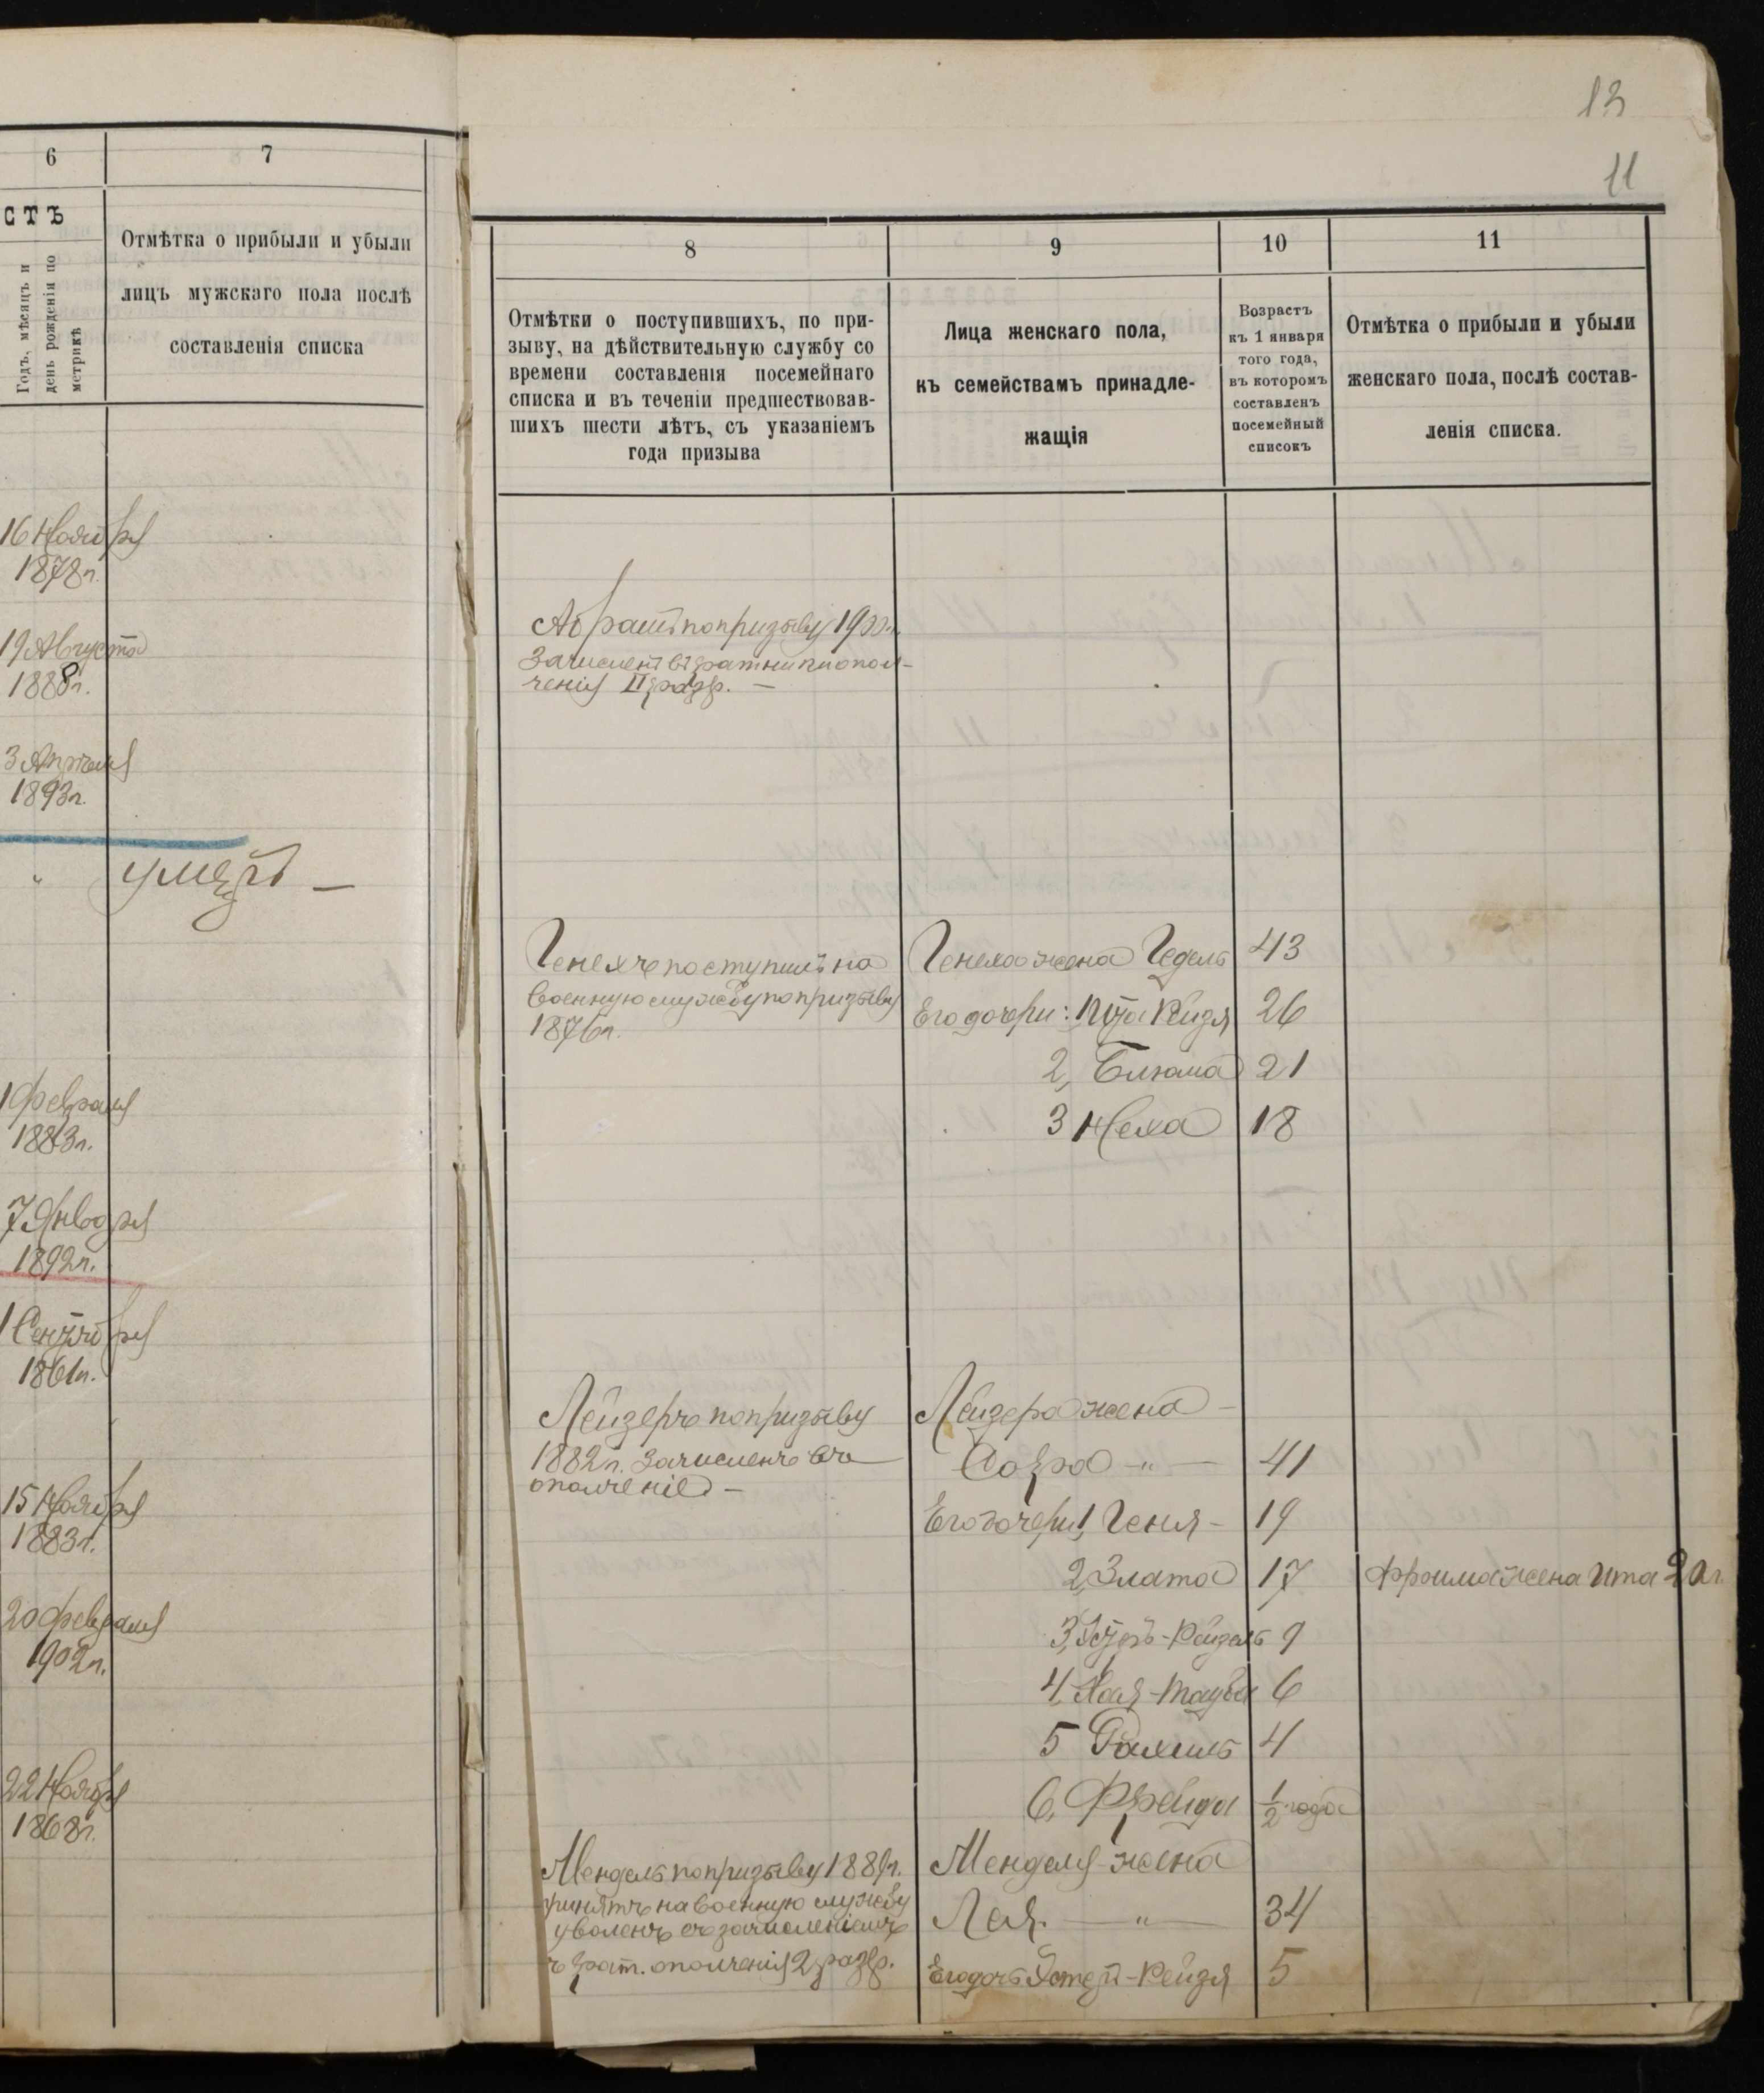 12
11
6
7
СТЪ
Годъ, мѣсяцъ и
день рожденія по
метрикѣ
Отмѣтка о прибыли и убыли
лицъ мужскаго пола послѣ
составленія списка
16 Ноября
1878г.
19 Августа
1888г.
3 Апрѣля
1893г.
" умеръ —
1 Февраля
1883г.
7 Января
1892г.
1 Сентября
1861г.
15 Ноября
1883г.
20 февраля
1902г.
22 Ноября
1868г.
8
9
10
11
Отмѣтки о поступившихъ, по при-
зыву, на дѣйствительную службу со
времени составленія посемейнаго
списка и въ теченіи предшествовав-
шихъ шести лѣтъ, съ указаніемъ
года призыва
Лица женскаго пола,
къ семействамъ принадле-
жащія
Возрастъ
къ 1 января
того года,
въ которомъ
составленъ
посемейный
списокъ
Отмѣтка о прибыли и убыли
женскаго пола, послѣ состав-
ленія списка.
по призыву 1900г.
Зачисленъ въ ратники опол-
ченія II разр. —
Генехъ поступилъ на
военную службу по призыву
1876г.
Генеха жена Гедель 43
Его дочери: 1 Ита Рейзя 26
2, Блюма 21
3 Неха 18
Лейзеръ по призыву
1882г. зачисленъ въ
ополченіе —
Лейзера жена —
Сора — " — 41
Его дочери 1, Геня — 19
2, Злата 17 Фроима жена Ита 20 г.
3, Эстеръ-Рейзель 9
4, Хая-Тауба 6
5 Рахиль 4
6, Фрейда ½ года
Мендель по призыву 1889г.
принятъ на военную службу
уволенъ съ зачисленіемъ
въ рат. ополченія 2 разр.
Менделя жена
Лея. — " — 34
Его дочь Эстеръ-Рейзя 5